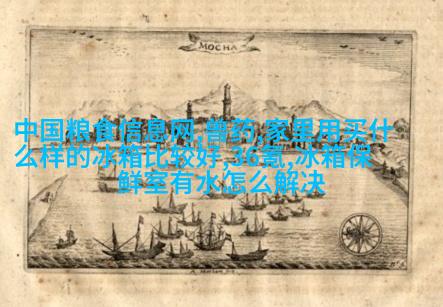 MOCHA
中国粮食信息网,兽药,家里用买什
么样的冰箱比较好,36氪,冰箱保
鲜室有水怎么解决